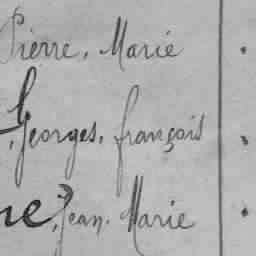 Pierre, Marie
Georges, françois
ne, Jean. Marie